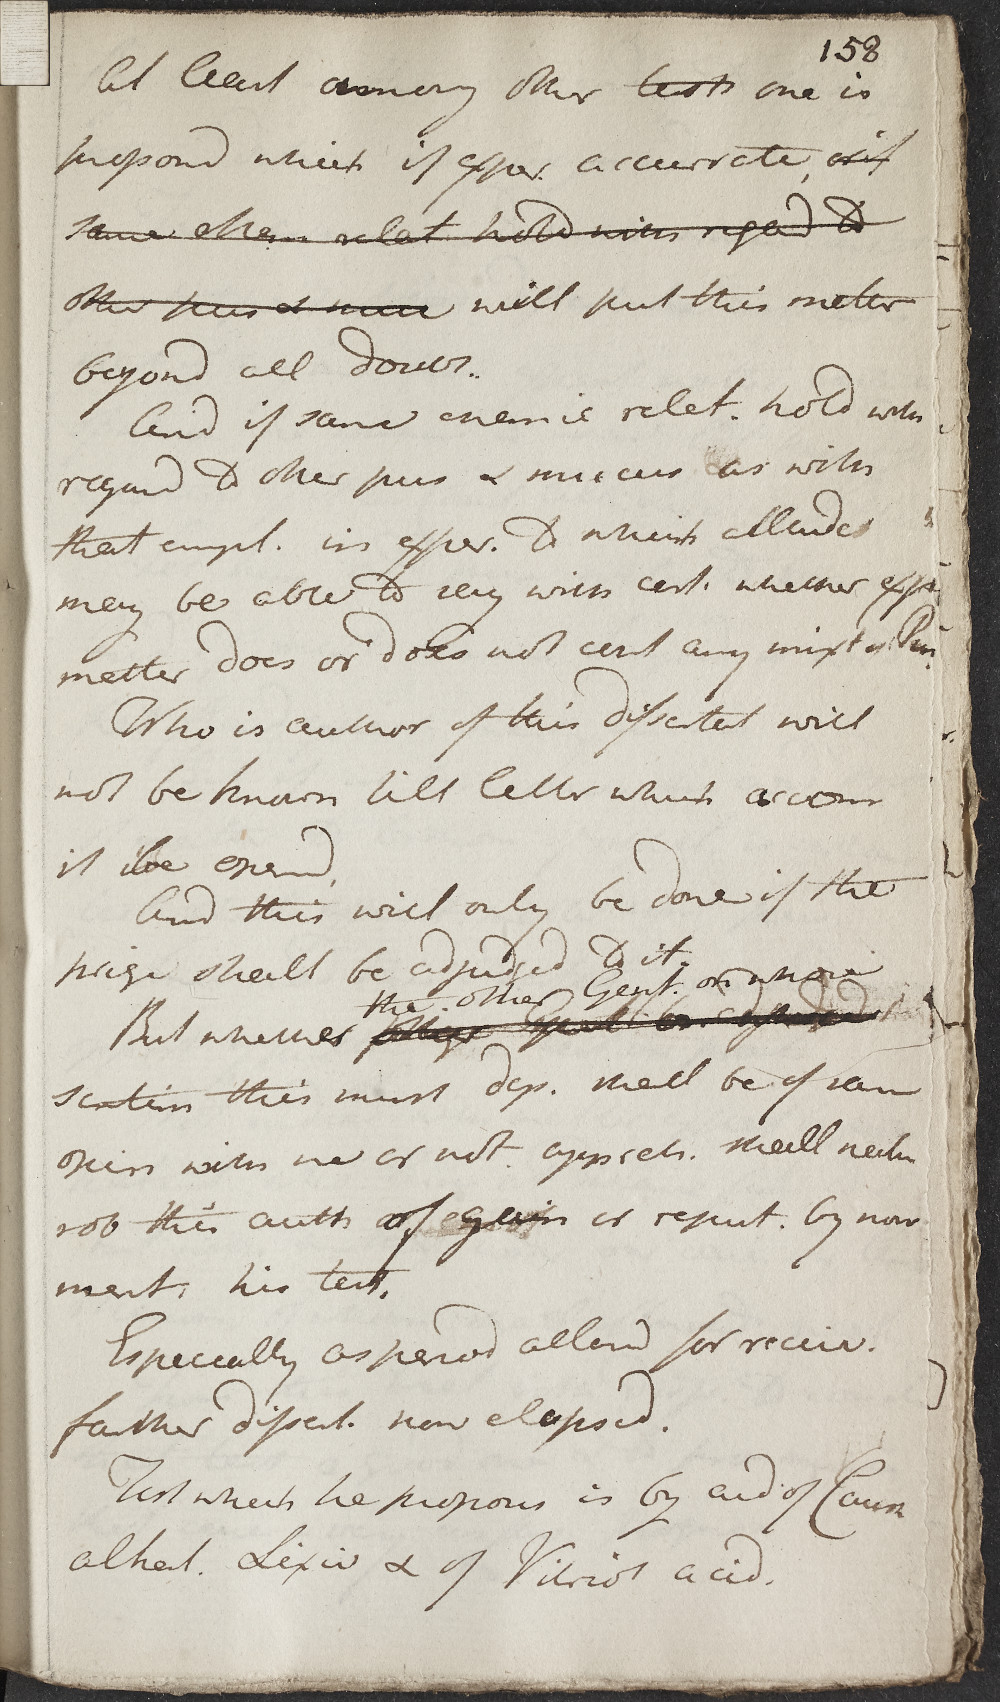 158
At least among other tests one is
propond which if exper. accurate, or if
same chem relat hold with regard to
other pus & muc will put this matter
beyond all doubt.
And if same chemic relat. hold with
regard to other pus & mucus as with
that empl. in exper. to which allude
may be able to say with cert. whether exp
matter does or does not cont any mixt of Pus.
Who is author of this dissertat will
not be known till letter which accom
it be opend.
And this will only be done if the
prize shall be adjudged to it.
the other Gent. on whom
But whether
sentim this must dep. shall be of sam
opin with me or not. appreh. shall neith
rob this auth of gain or reput. by now
ment. his test.
Especially as period allowd for receiv.
farther dissert. now elapsed.
Test which he propous is by aid of Caus
alkal. Lixiv & of Vitriol acid.